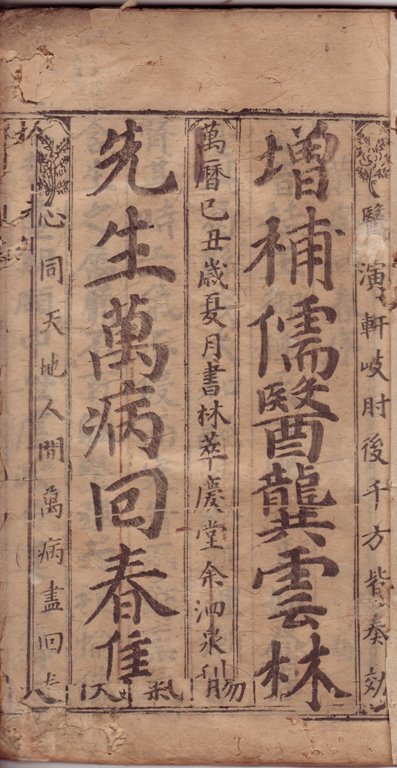 醫演軒岐肘後千方皆奏効
增補儒醫龔雲林
萬曆己丑歲夏月書林萃慶堂余泗泉
先生萬病回春
心同天地人間萬病盡回